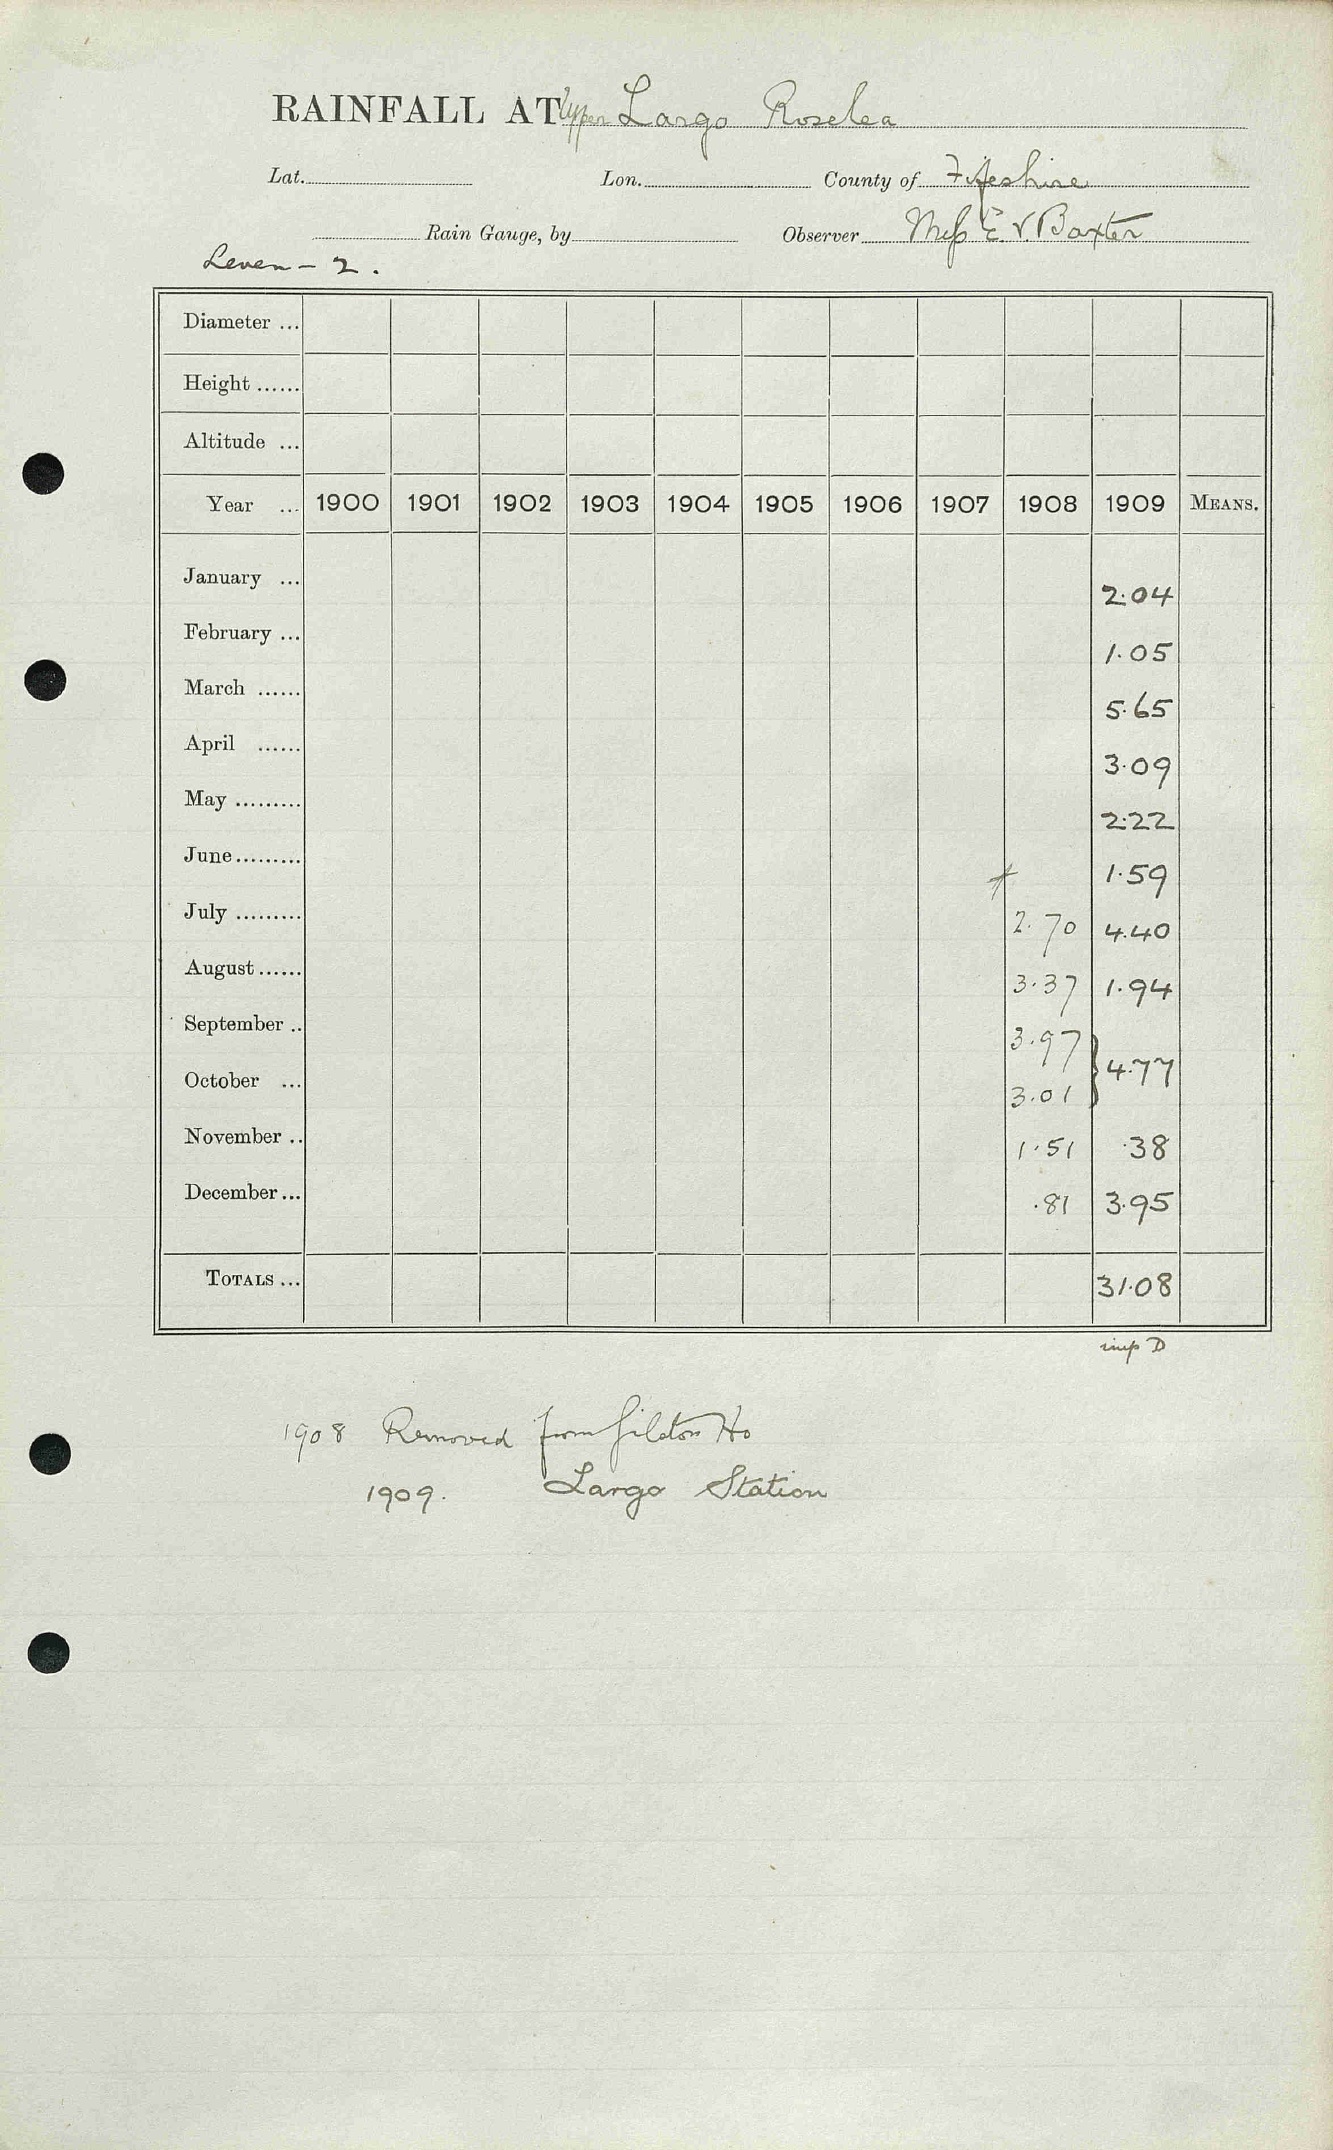 RAINFALL AT Upper Largo Roselea
Lat. Lon. County of Fifeshire
Rain Gauge, by Observer Miss E V. Baxter
Leven - 2.
Diameter ...
Height ......
Altitude ...
Year ... 1900 1901 1902 1903 1904 1905 1906 1907 1908 1909 MEANS.
January ... 2.04
February ... 1.05
March ...... 5.65
April ...... 3.09
May ......... 2.22
June ......... 1.59
July ......... 2.70 4.40
August ...... 3.37 1.94
September .. 3.97 } 4.77
October ... 3.01
November .. 1.51 .38
December ... .81 3.95
TOTALS ... 31.08
imp D
1908 Removed from Gilston Ho
1909. Largo Station